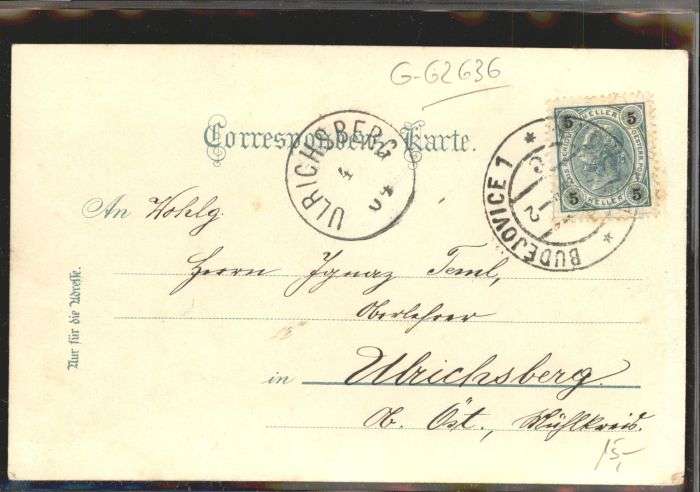 G-G2636
Correspondenz-Karte.
ULRICHSBERG
4
BUDEJOVICE 1
5 HELLER 5
5 HELLER 5
An Wohlg.
Herrn Ignaz Teml,
Oberlehrer
in Ulrichsberg.
Ob. Öst., Mühlkreis.
Nur für die Adresse.
15,-